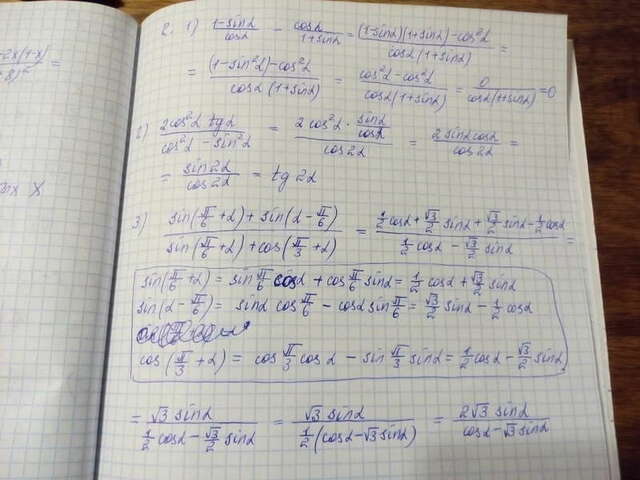 -2x(1-x)
+8)²
=
x
2. 1) (1-sinα)/cosα - cosα/(1+sinα) = ((1-sinα)(1+sinα)-cos²α)/(cosα(1+sinα)) =
= ((1-sin²α)-cos²α)/(cosα(1+sinα)) = (cos²α-cos²α)/(cosα(1+sinα)) = 0/(cosα(1+sinα)) = 0
2) (2cos²α tgα)/(cos²α - sin²α) = (2cos²α · sinα/cosα)/cos2α = (2sinα cosα)/cos2α =
= sin2α/cos2α = tg 2α
3) (sin(π/6+α) + sin(α-π/6))/(sin(π/6+α) + cos(π/3+α)) = (1/2 cosα + √3/2 sinα + √3/2 sinα - 1/2 cosα)/(1/2 cosα - √3/2 sinα) =
sin(π/6+α) = sin π/6 cosα + cos π/6 sinα = 1/2 cosα + √3/2 sinα
sin(α-π/6) = sinα cos π/6 - cosα sin π/6 = √3/2 sinα - 1/2 cosα
cos(π/3+α) = cos π/3 cosα - sin π/3 sinα = 1/2 cosα - √3/2 sinα
= √3 sinα/(1/2 cosα - √3/2 sinα) = √3 sinα/(1/2(cosα-√3 sinα)) = 2√3 sinα/(cosα-√3 sinα)